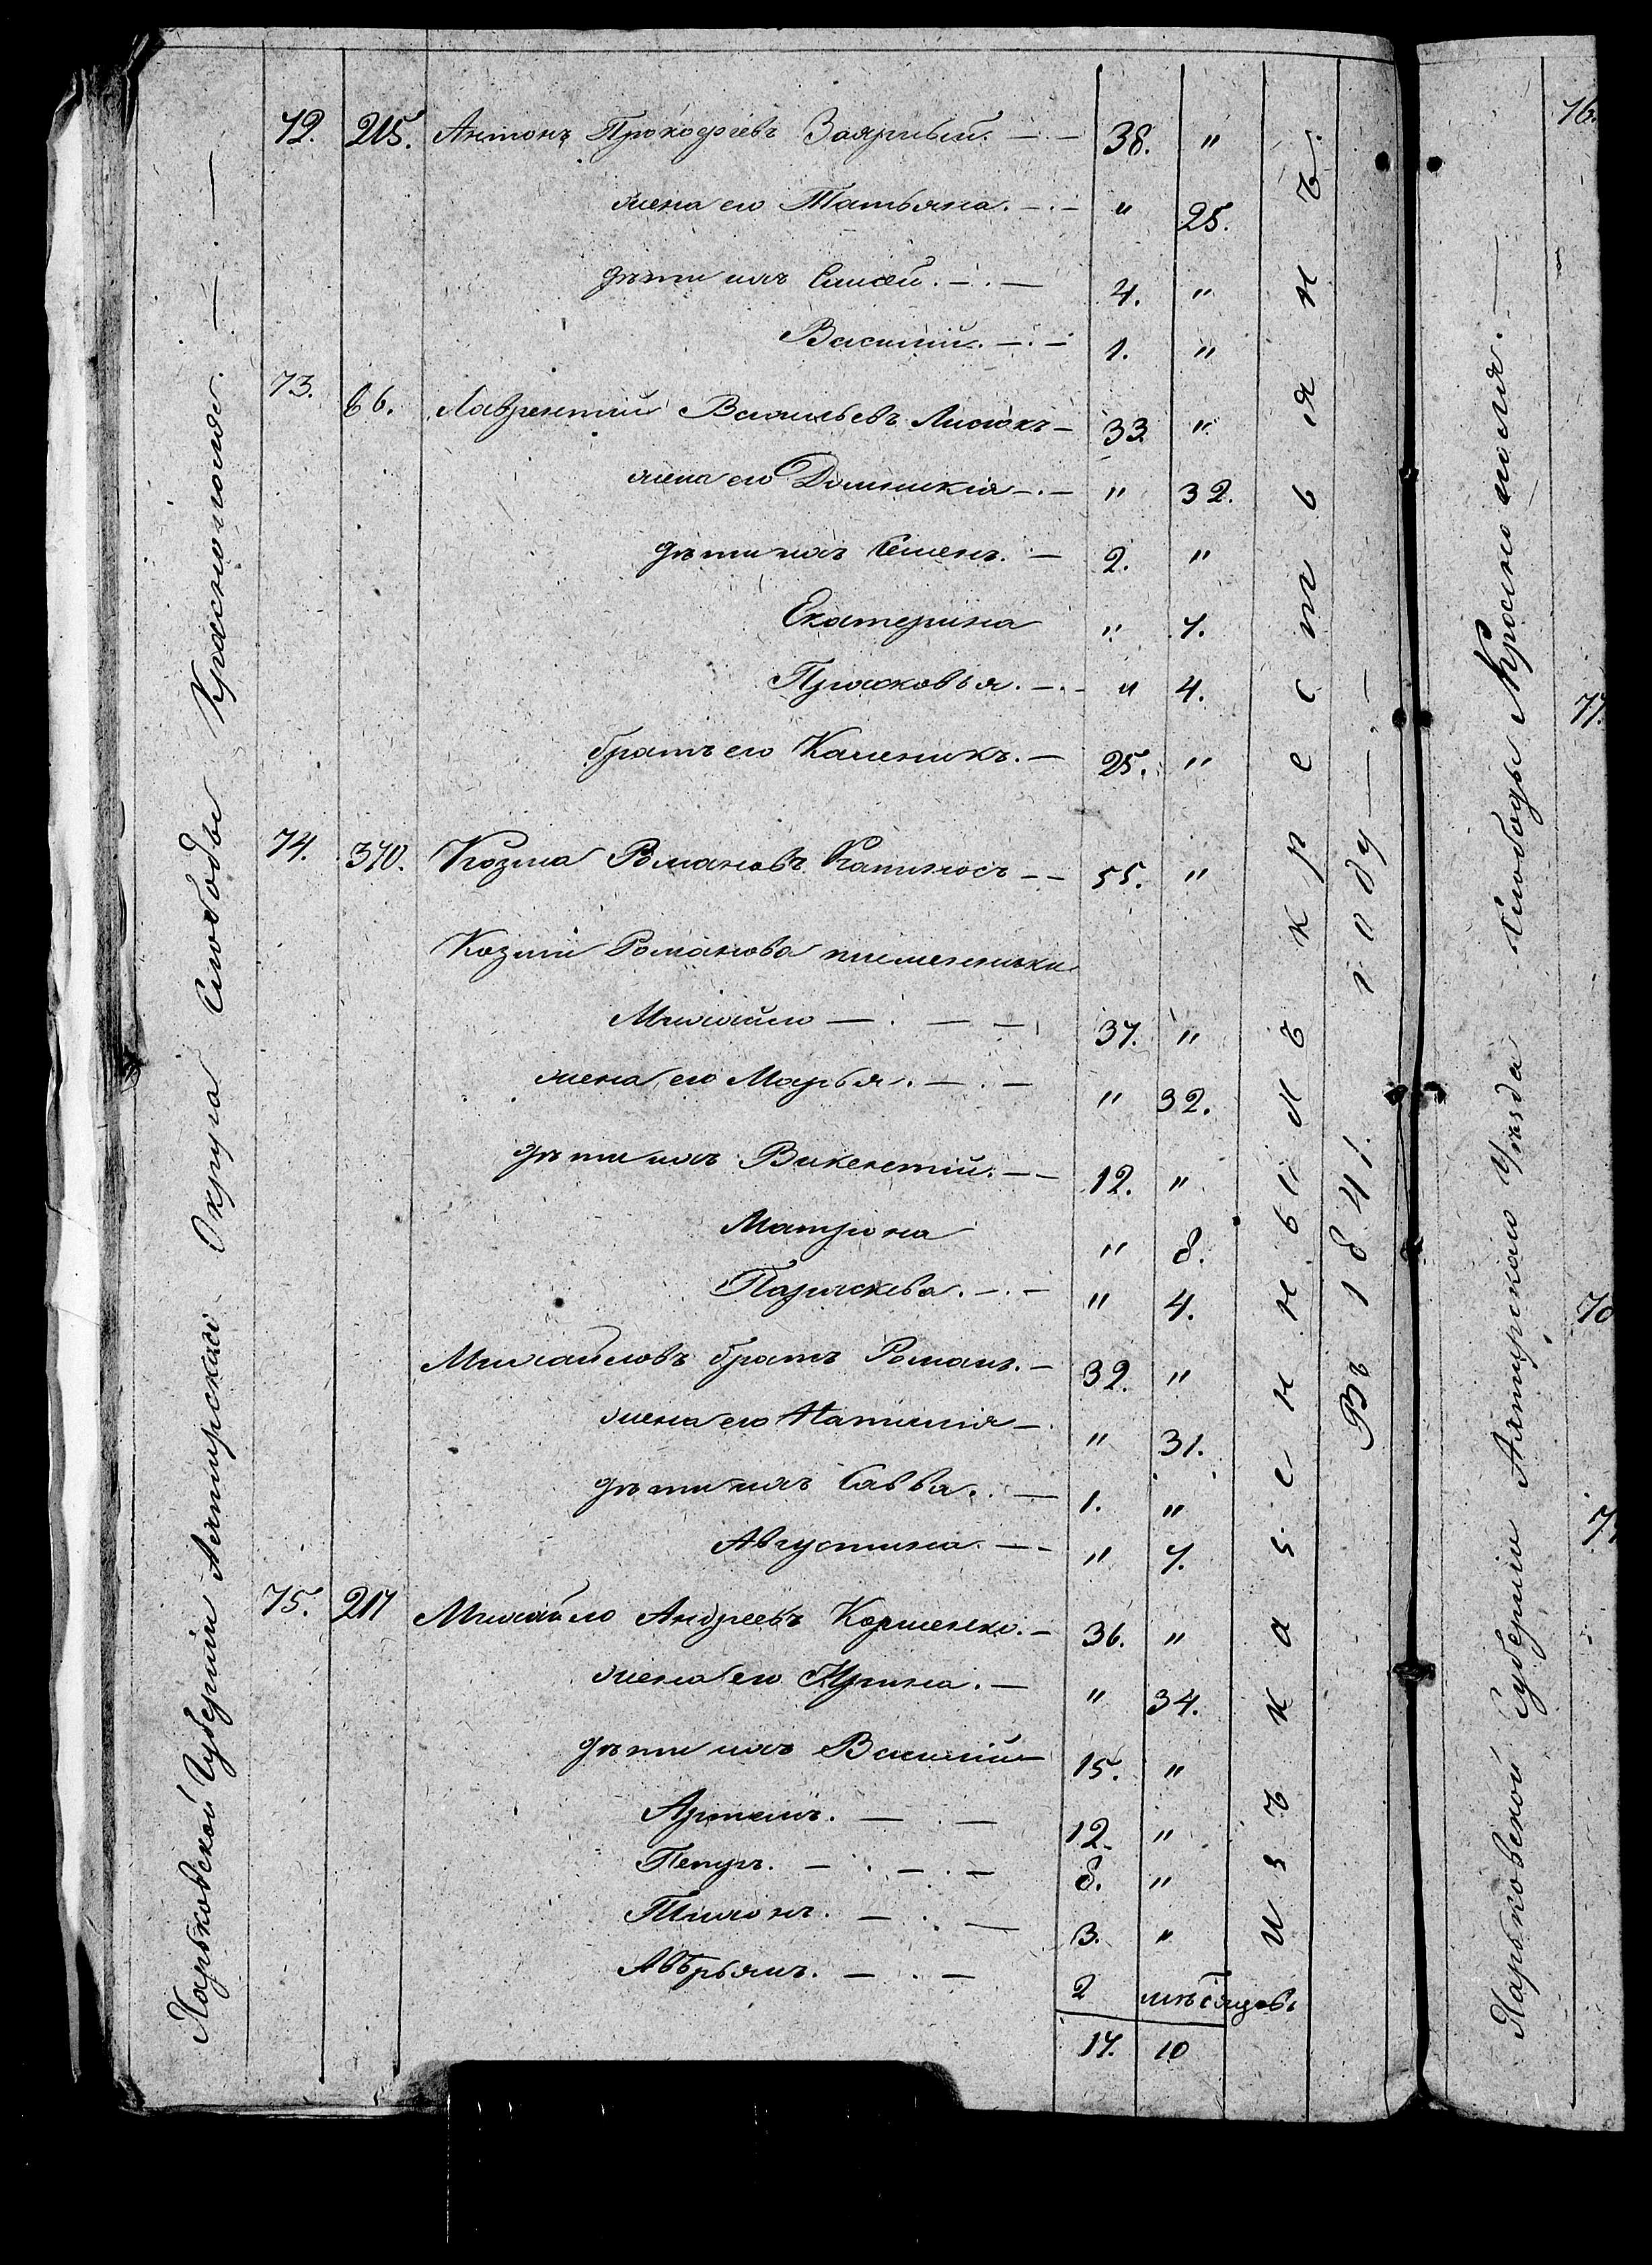 Харьковской Губерніи Ахтырскаго Округа Слободы Краснополья. — . —
72. 215. Антонъ Прокофьевъ Заярный. — . — 38. "
жена его Татьяна. — . — " 25.
дѣти ихъ Елисей. — . — 4. "
Василий. — . — 1. "
73. 66. Лаврентий Васильевъ — 33. "
жена его Домникія — . — " 32.
дѣти ихъ Семенъ. — 2. "
Екатерина " 7.
Прасковья. — . — " 4.
братъ его Каленикъ. — 25. "
74. 370. Козма Романовъ — — 55. "
Козми Романова племенники
Михайло — . — — 37. "
жена его Марья. — . — " 32.
дѣти ихъ Викентій. — — 12. "
Матрона " 8.
Параскева. — . — " 4.
Михайловъ братъ Романъ. — 32. "
жена его Наталия — " 31.
дѣти ихъ Савва. . — 1. "
Августина. — — " 7.
75. 217 Михайло Андреевъ — 36. "
жена его Ирина. — " 34.
дѣти ихъ Василий 15. "
Артемъ. — . — 12. "
Петръ. — . — . — 8. "
Тихонъ. — . — 3. "
Аврьямъ. — . — 2 мѣсяцовъ
17. 10
Изъ казенныхъ крестьянъ.
Въ 1841. году — . —
Харьковской Губерніи Ахтырскаго Уѣзда Слободы Краснополья. —
76.
77.